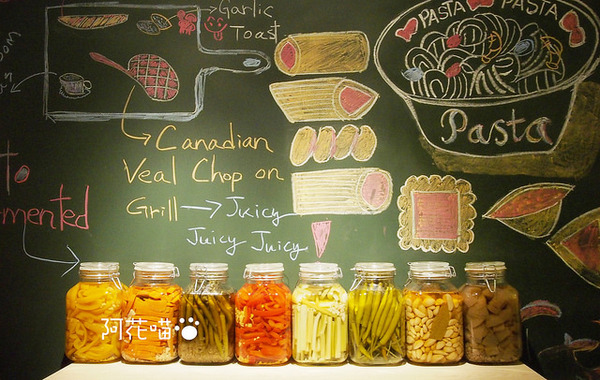 Garlic
Toast
PASTA PASTA
Pasta
Canadian
Veal Chop on
Grill → Juicy
Juicy Juicy
to
mented
阿花喵